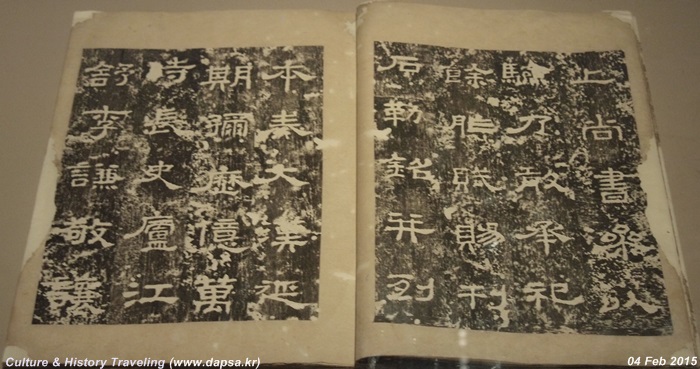 上尚書參以
驗乃敢承祀
餘胙賦賜刊
石勒銘并列
本奏大漢延
期彌歷億萬
時長史廬江
舒李謙敬讓
Culture & History Traveling (www.dapsa.kr)
04 Feb 2015